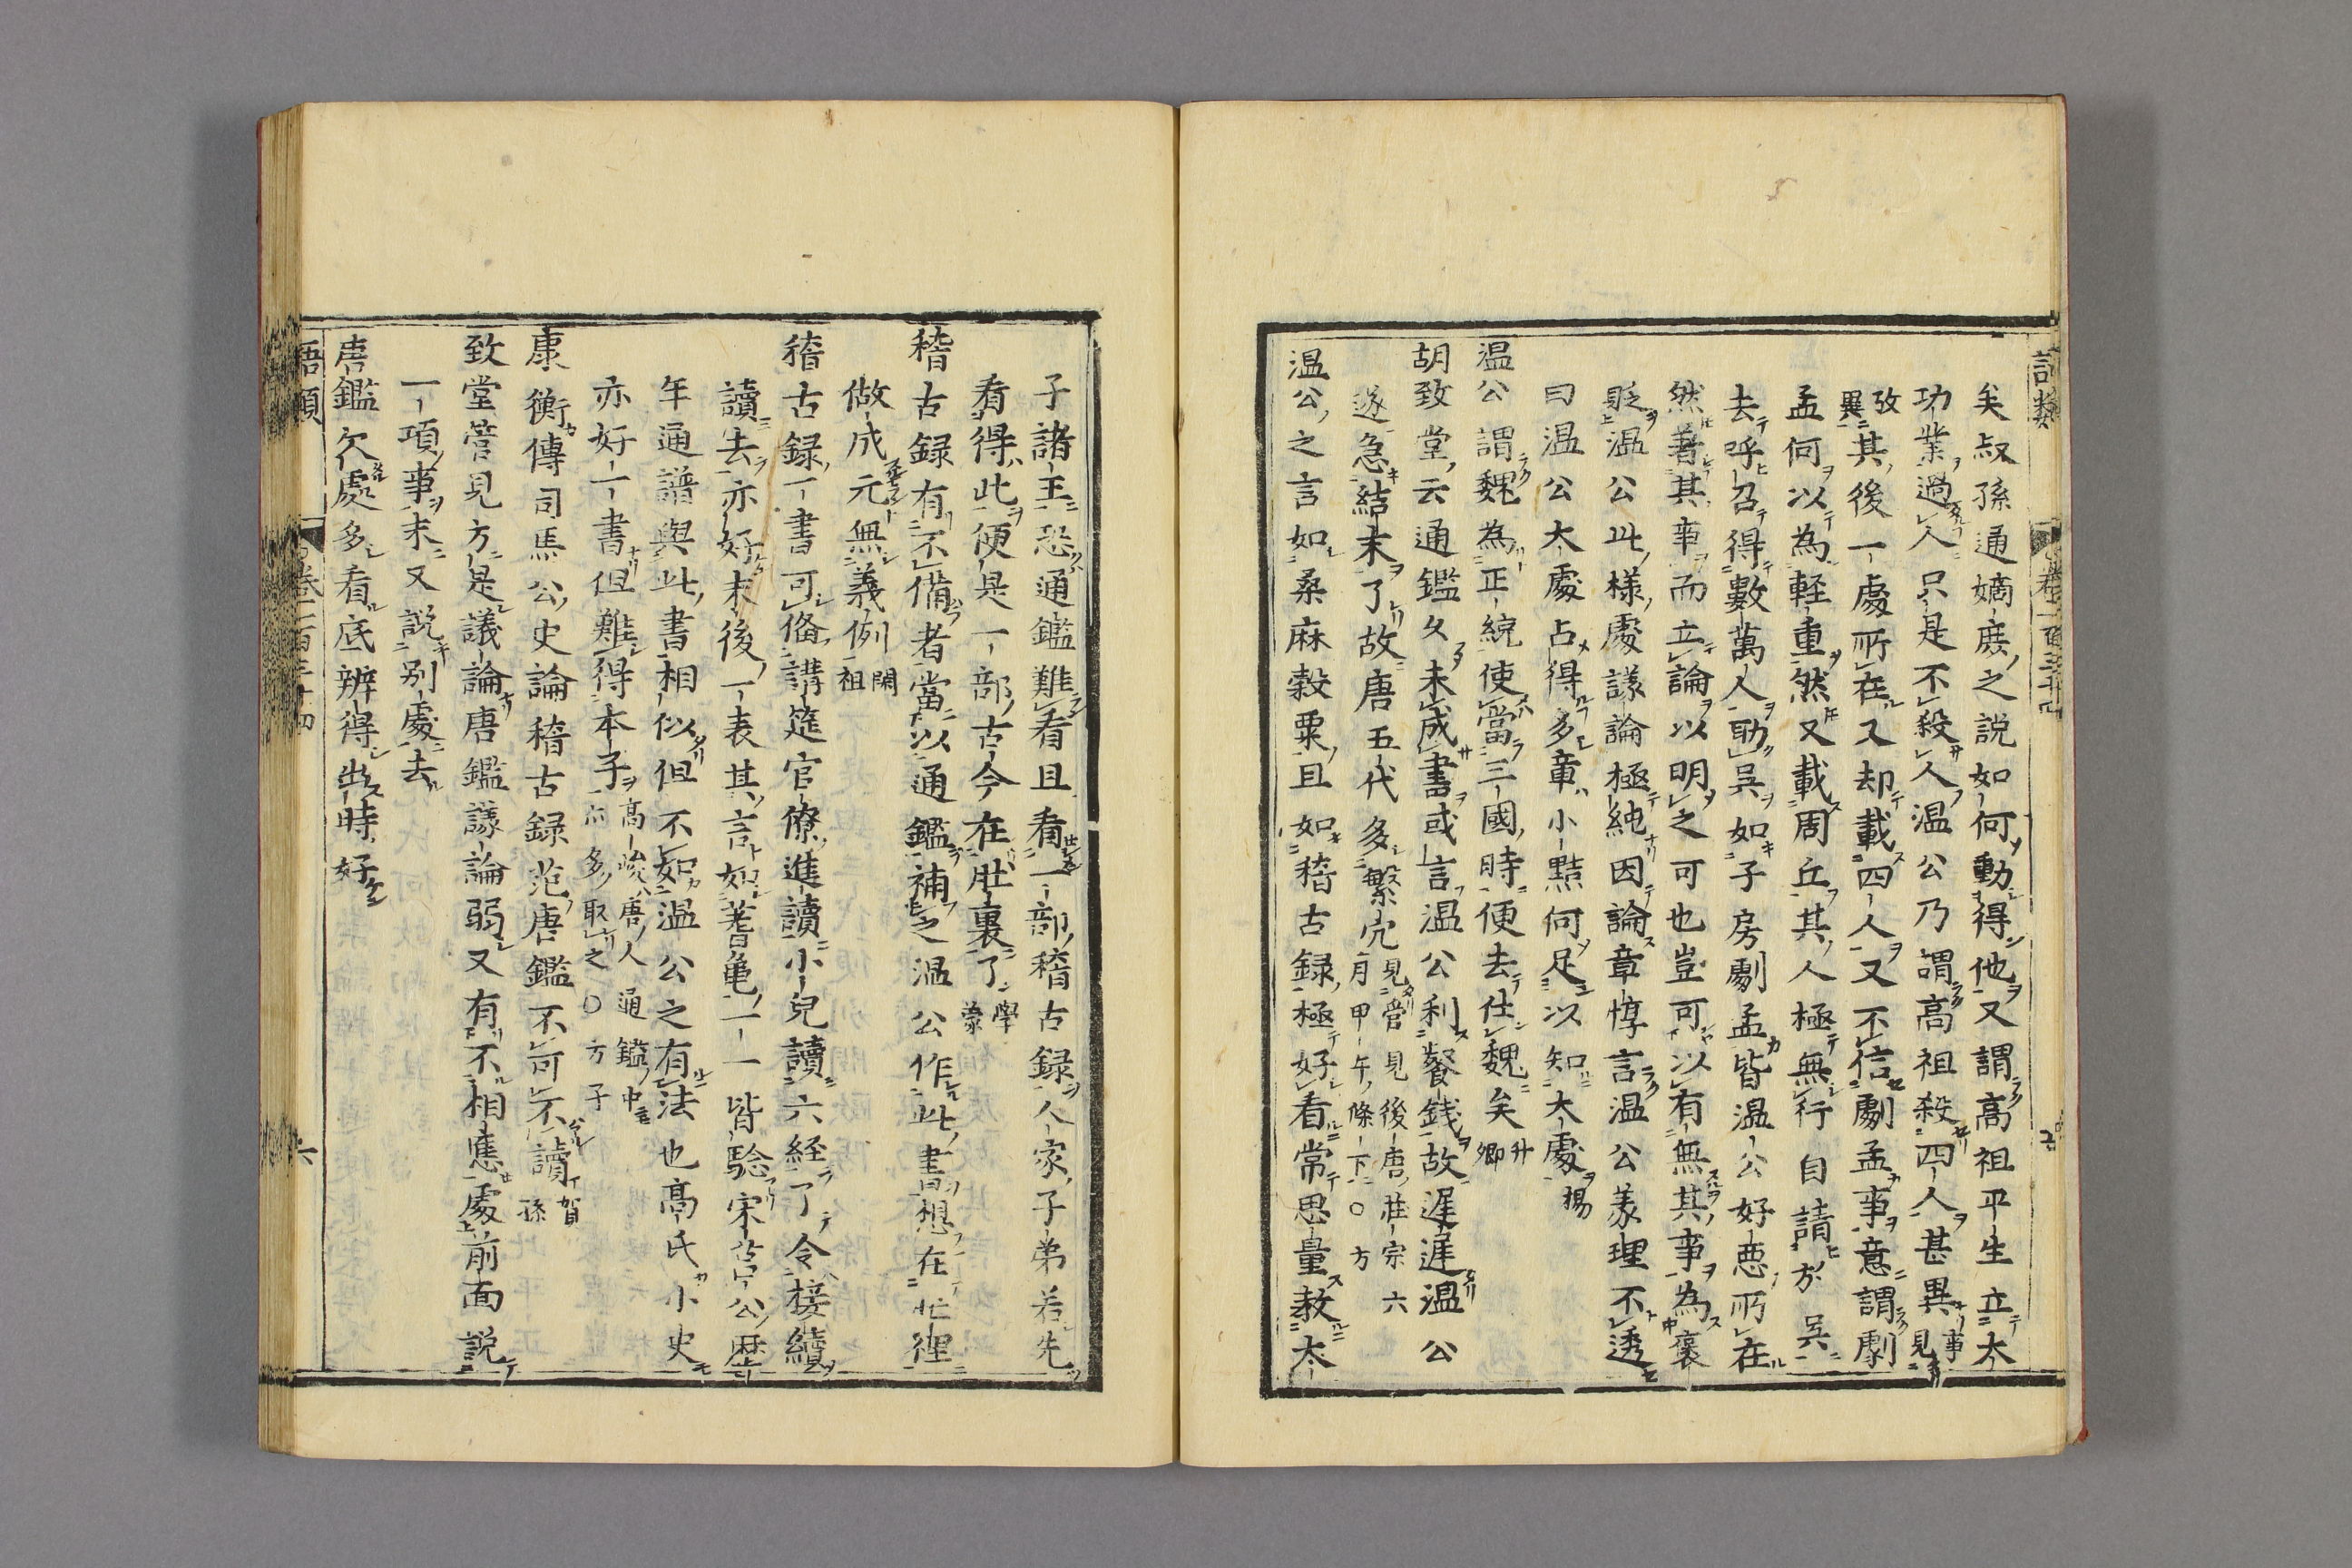 語類
卷一百三十四
五
矣叔孫通嫡庻之説如何動得他又謂高祖平生立大
功業過人只是不殺人温公乃謂高祖殺四人甚異事見
攷異其後一處所在又却載四人又不信劇孟事意謂劇
孟何以為輕重然又載周丘其人極無行自請於呉
去呼召得數萬人助呉如子房劇孟皆温公好惡所在
然著其事而立論以明之可也豈可以有無其事為褒
貶温公此様處議論極純因論章惇言温公義理不透
曰温公大處占得多章小黠何足以知大處揚
温公謂魏為正統使當三國時便去仕魏矣升卿
胡致堂云通鑑久未成書或言温公利餐錢故遲遲温公
遂急結末了故唐五代多繁冗見管見後唐莊宗六月甲午條下○方
温公之言如桑麻穀粟且如稽古録極好看常思量教太
子諸王恐通鑑難看且看一部稽古録人家子弟若先
看得此便是一部古今在肚裏了學蒙
稽古録有不備者當以通鑑補之温公作此書想在忙裡
做成元無義例閎祖
稽古録一書可俻講筵官僚進讀小兒讀六経了令接續
讀去亦好末後一表其言如蓍亀一一皆驗宋莒公歴
年通譜與此書相似但不如温公之有法也高氏小史
亦好一書但難得本子高峻唐人通鑑中亦多取之○方子
康衡傳司馬公史論稽古録范唐鑑不可不讀賀孫
致堂管見方是議論唐鑑議論弱又有不相應處前面説
一項事末又説别處去
唐鑑欠處多看底辨得出時好
語類
卷一百三十四
六